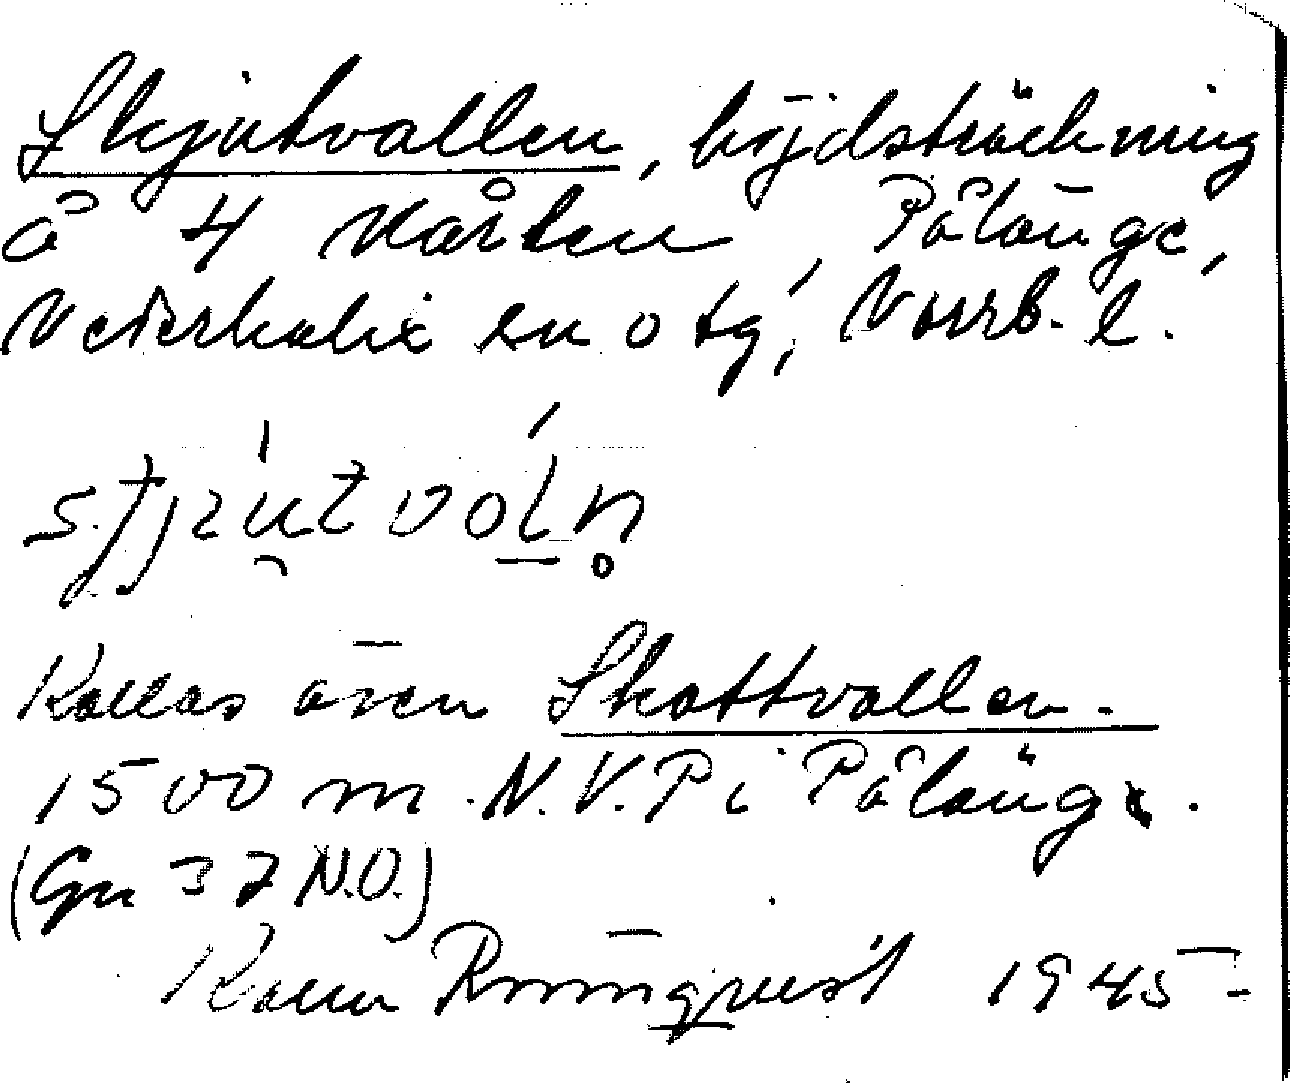 Skjutvallen, höjdsträckning
å 4 Kåsten, Pålänge,
Nederkalix sn o tg, Norrb. l.
Kallas även Skottvallen.
1500 m N.V. P i Pålänge.
(Gn 37 N.O.)
Rönnqvist 1945